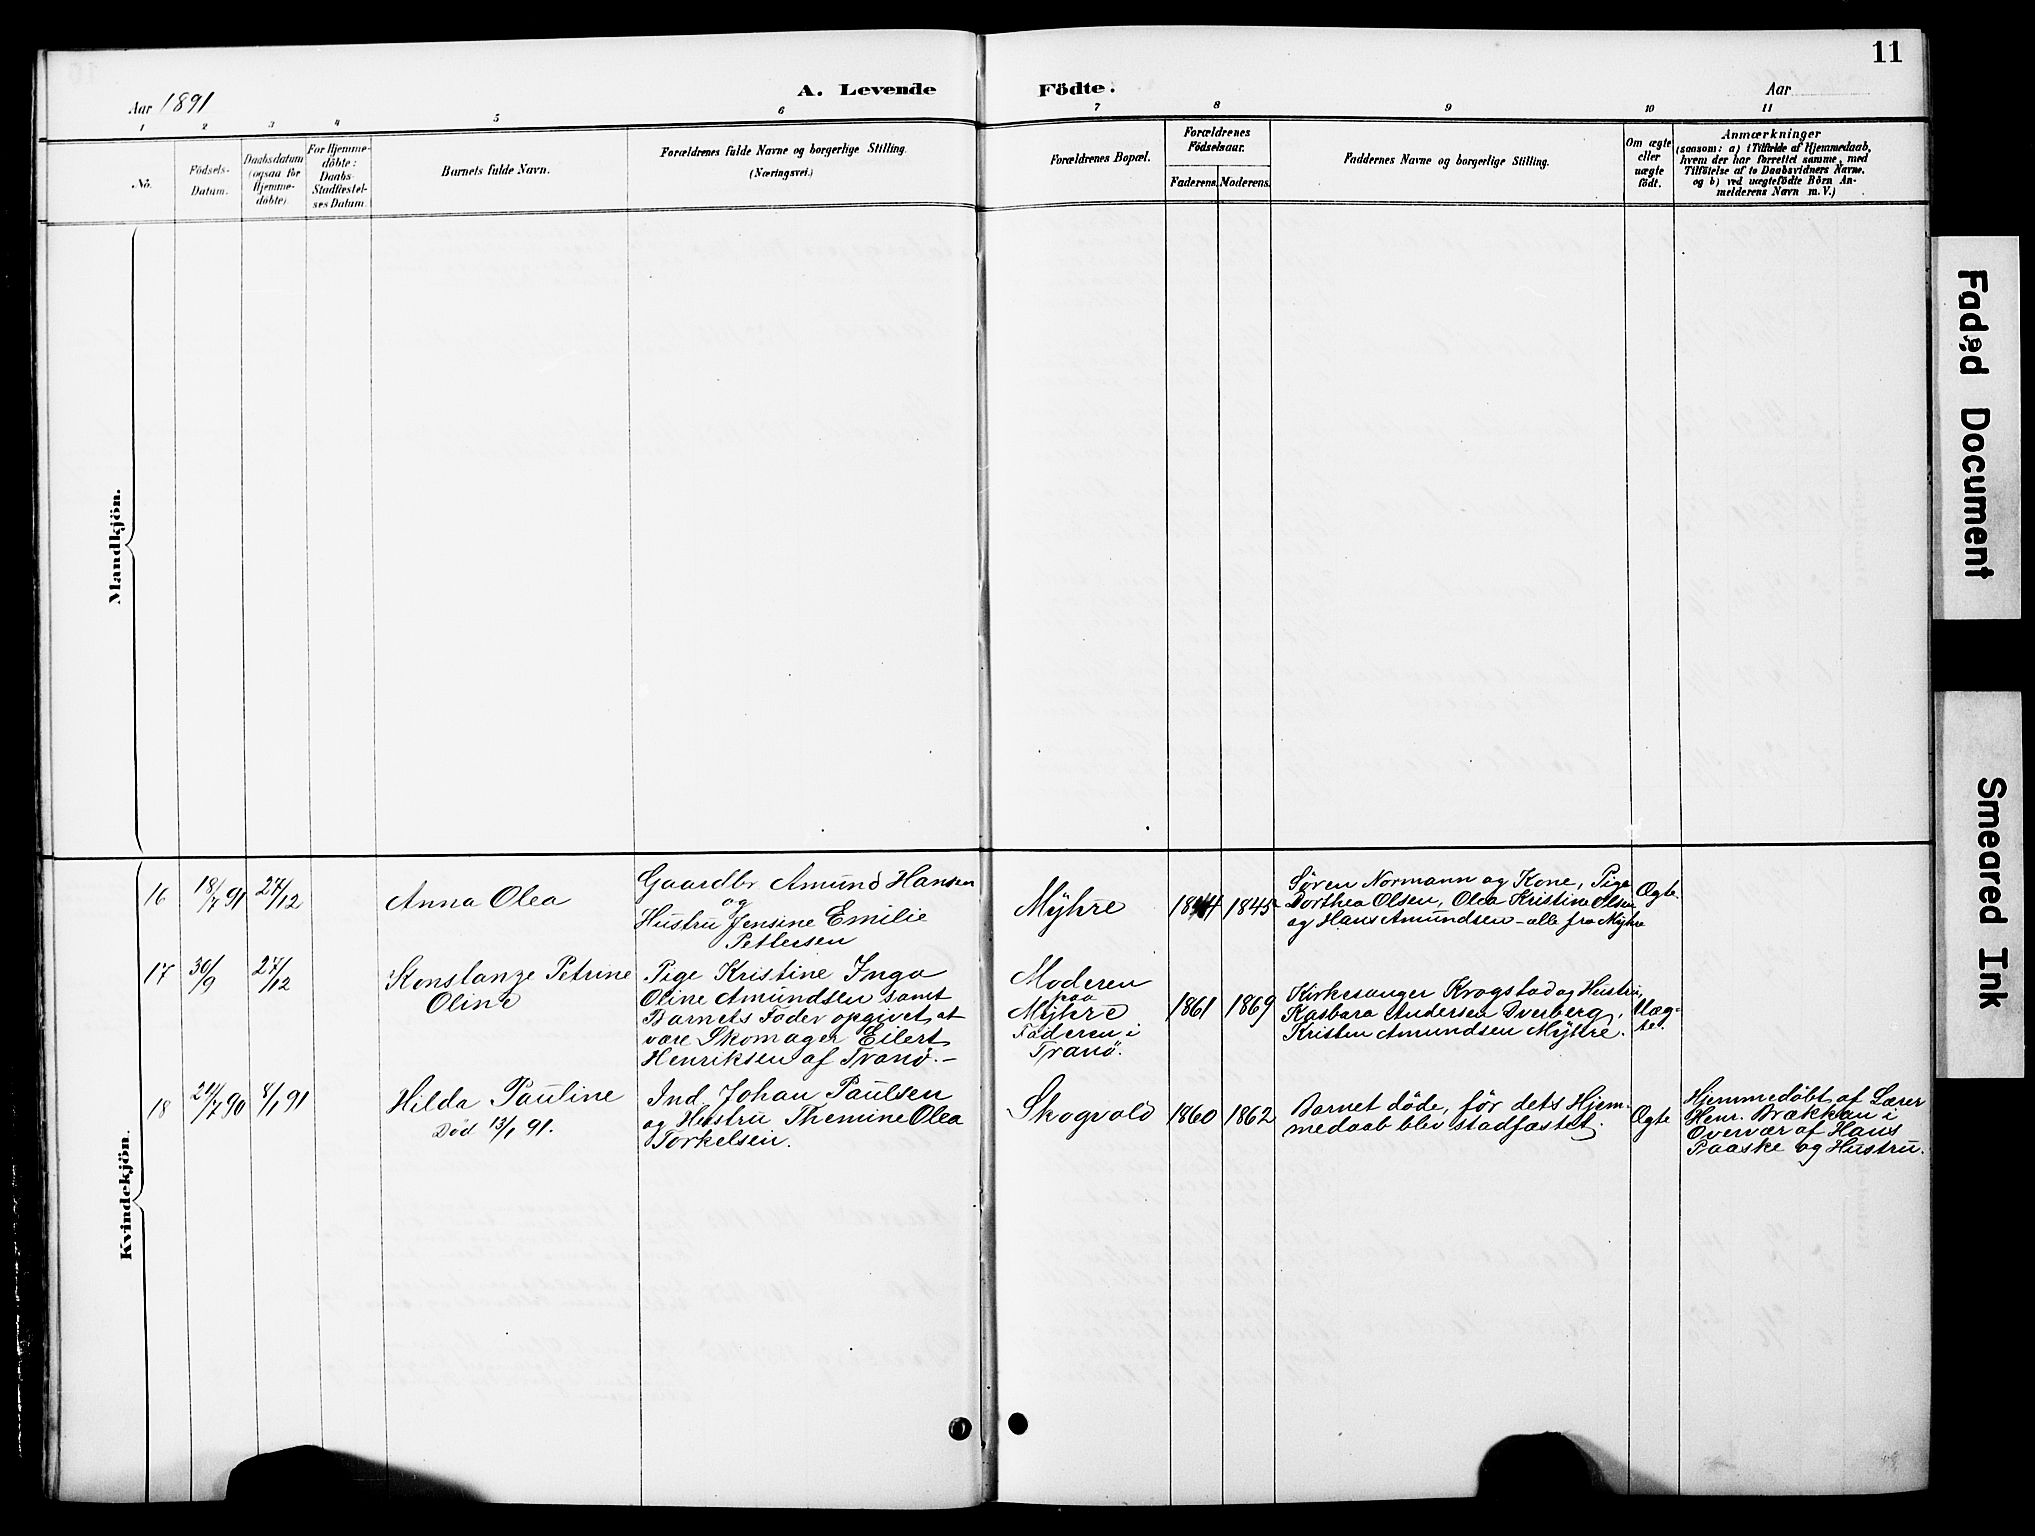 11
Aar 1891
A. Levende Födte.
Aar
1 2 3 4 5 6 7 8 9 10 11
No.
Födsels-
Datum.
Daabsdatum
(ogsaa for
Hjemme-
döbte).
For Hjemme-
döbte:
Daabs-
Stadfæstel-
ses Datum.
Barnets fulde Navn.
Forældrenes fulde Navne og borgerlige Stilling.
(Næringsvei.)
Forældrenes Bopæl.
Forældrenes
Födselsaar.
Faderens. Moderens.
Faddernes Navne og borgerlige Stilling.
Om ægte
eller
uægte
födt.
Anmærkninger
(saasom: a) i Tilfælde af Hjemmedaab,
hvem der har forrettet samme, med
Tilföielse af to Daabsvidners Navne,
og b) ved uægtefödte Börn An-
melderens Navn m. V.)
Mandkjön.
Kvindekjön.
16
18/7 91
27/12
Anna Olea
Gaardbr Amund Hansen
og
Hustru Jensine Emilie
Pettersen
Myhre
1844
1845
Søren Normann og Kone, Pige
Dorthea Olsen, Olea Kristine Olsen
og Hans Amundsen - alle fra Myhre
Ægte
17
30/9
27/12
Konstanze Petrine
Oline
Pige Kristine Inga
Oline Amundsen samt
Barnets Fader opgivet at
være Skomager Eilert
Henriksen af Tranø. -
Moderen
paa
Myhre
Faderen i
Tranø.
1861
1869
Kirkesanger Krogstad og Hustru,
Kasbara Andersen Dverberg,
Kristen Amundsen Myhre.
Uæg-
te.
18
24/7 90
4/1 91
Hilda Pauline
Død 13/1 91.
Ind. Johan Paulsen
og Hustru Themine Olea
Torkelsen.
Skogvold
1860
1862
Barnet døde, før dets Hjem-
medaab blev stadfæstet.
Ægte
Hjemmedøbt af Lærer
Henr. Brækkan i
Overvær af Hans
Paaske og Hustru.
Faded Document
Smeared Ink